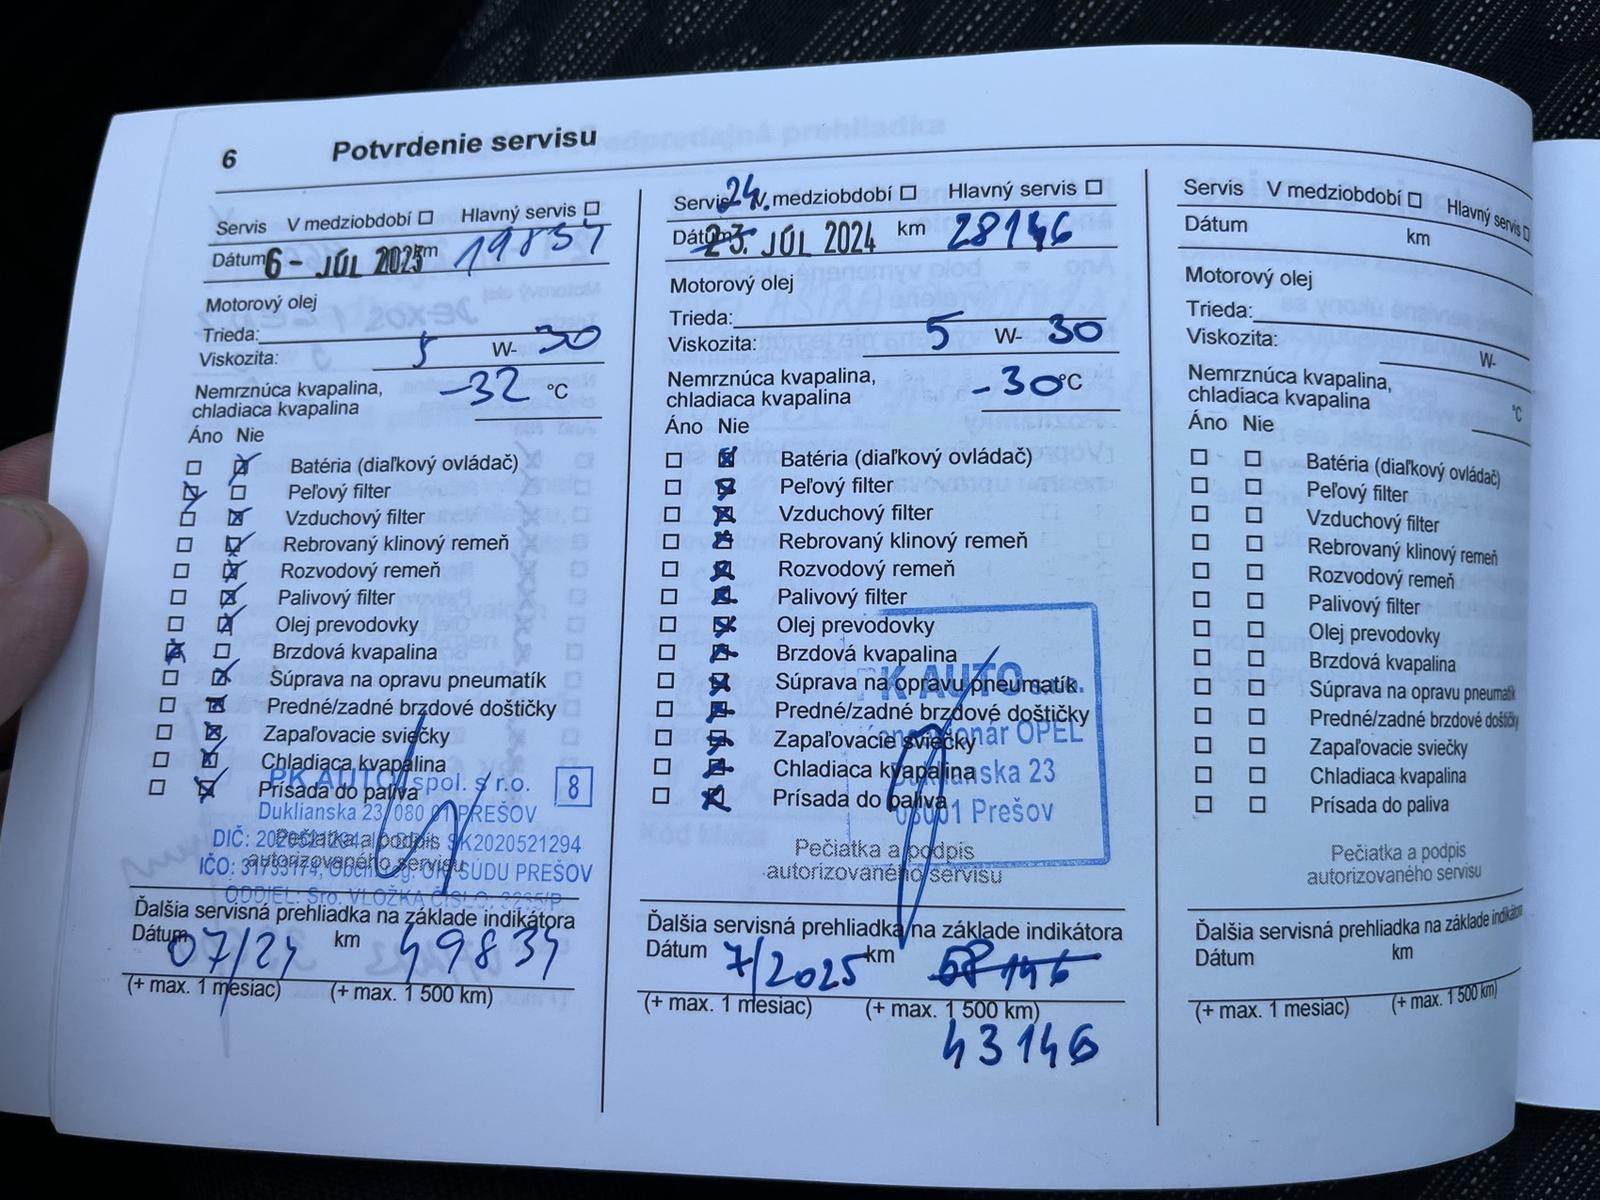 6 Potvrdenie servisu
Servis V medziobdobí Hlavný servis
Dátum 6 - JÚL 2023 km 19834
Motorový olej
Trieda:
Viskozita: 5 W- 30
Nemrznúca kvapalina,
chladiaca kvapalina -32 °C
Áno Nie
Batéria (diaľkový ovládač)
Peľový filter
Vzduchový filter
Rebrovaný klinový remeň
Rozvodový remeň
Palivový filter
Olej prevodovky
Brzdová kvapalina
Súprava na opravu pneumatík
Predné/zadné brzdové doštičky
Zapaľovacie sviečky
Chladiaca kvapalina
Prísada do paliva
PK AUTO spol. s r.o. 8
Duklianska 23, 080 01 PREŠOV
DIČ: SK2020521294
Pečiatka a podpis
autorizovaného servisu
SÚDU PREŠOV
ODDIEL: Sro, VLOŽKA ČÍSLO:
Ďalšia servisná prehliadka na základe indikátora
Dátum 07/24 km 49834
(+ max. 1 mesiac) (+ max. 1 500 km)
24.
Servis V medziobdobí Hlavný servis
Dátum 23. JÚL 2024 km 28146
Motorový olej
Trieda:
Viskozita: 5 W- 30
Nemrznúca kvapalina,
chladiaca kvapalina -30 °C
Áno Nie
Batéria (diaľkový ovládač)
Peľový filter
Vzduchový filter
Rebrovaný klinový remeň
Rozvodový remeň
Palivový filter
Olej prevodovky
Brzdová kvapalina
Súprava na opravu pneumatík
Predné/zadné brzdové doštičky
Zapaľovacie sviečky
Chladiaca kvapalina
Prísada do paliva
PK AUTO s.r.o.
OPEL
Duklianska 23
08001 Prešov
Pečiatka a podpis
autorizovaného servisu
Ďalšia servisná prehliadka na základe indikátora
Dátum 7/2025 km 58146
(+ max. 1 mesiac) (+ max. 1 500 km)
43146
Servis V medziobdobí Hlavný servis
Dátum km
Motorový olej
Trieda:
Viskozita: W-
Nemrznúca kvapalina,
chladiaca kvapalina °C
Áno Nie
Batéria (diaľkový ovládač)
Peľový filter
Vzduchový filter
Rebrovaný klinový remeň
Rozvodový remeň
Palivový filter
Olej prevodovky
Brzdová kvapalina
Súprava na opravu pneumatík
Predné/zadné brzdové doštičky
Zapaľovacie sviečky
Chladiaca kvapalina
Prísada do paliva
Pečiatka a podpis
autorizovaného servisu
Ďalšia servisná prehliadka na základe indikátora
Dátum km
(+ max. 1 mesiac) (+ max. 1 500 km)